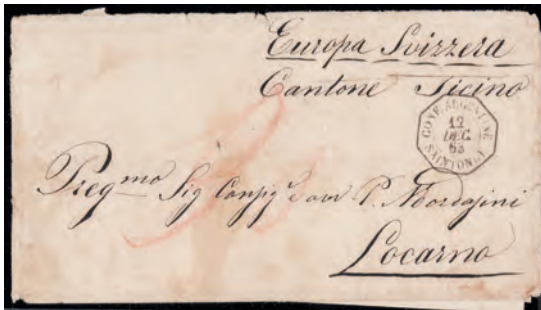 Europa Svizzera
Cantone Ticino
CONF. ARGENTINE
12
DEC.
63
SAINTONGE
Preg.mo Sig Consig.e avv P. Mordasini
Locarno